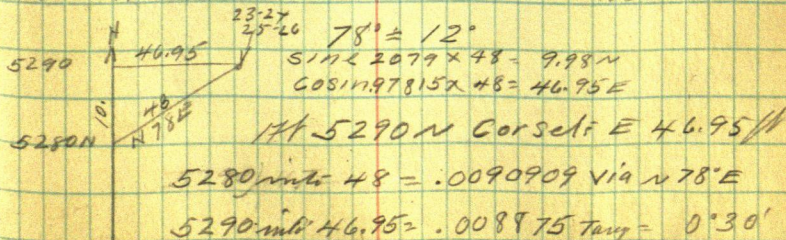 23-24
25-26
N
46.95
5290
10.
48
N 78 E
5280 N
78° = 12°
Sine 2079 x 48 = 9.98 N
Cosin .97815 x 48 = 46.95 E
5290 N Cor sets E 46.95 ft
5280 into 48 = .0090909 via N 78° E
5290 into 46.95 = .008875 Tang = 0° 30'